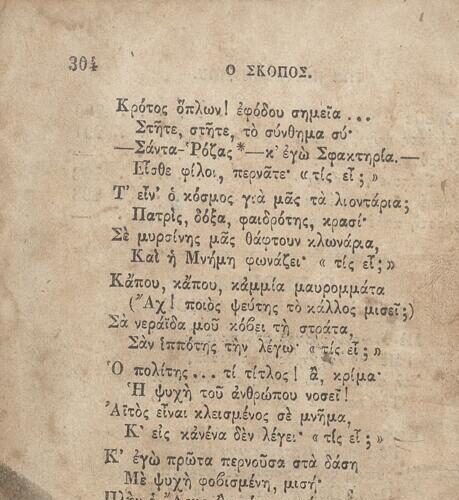 304
Ο ΣΚΟΠΟΣ.
Κρότος ὅπλων! ἐφόδου σημεῖα ...
Στῆτε, στῆτε, τὸ σύνθημα σύ·
—Σάντα-Ῥόζας*—κ' ἐγὼ Σφακτηρία.—
Εἶσθε φίλοι, περνᾶτε· «τίς εἶ;»
Τ' εἶν' ὁ κόσμος γιὰ μᾶς τὰ λιοντάρια;
Πατρὶς, δόξα, φαιδρότης, κρασί·
Σὲ μυρσίνης μᾶς θάφτουν κλωνάρια,
Καὶ ἡ Μνήμη φωνάζει· «τίς εἶ;»
Κἄπου, κἄπου, κἀμμία μαυρομμάτα
(Ἄχ! ποιὸς ψεύτης τὸ κάλλος μισεῖ;)
Σὰ νεράϊδα μοῦ κόβει τὴ στράτα,
Σὰν ἱππότης τὴν λέγω· «τίς εἶ;»
Ὁ πολίτης... τί τίτλος! ἆ, κρίμα·
Ἡ ψυχὴ τοῦ ἀνθρώπου νοσεῖ!
Ἀϊτὸς εἶναι κλεισμένος σὲ μνῆμα,
Κ' εἰς κανένα δὲν λέγει· «τίς εἶ;»
Κ' ἐγὼ πρῶτα περνοῦσα στὰ δάση
Μὲ ψυχὴ φοβισμένη, μισή·